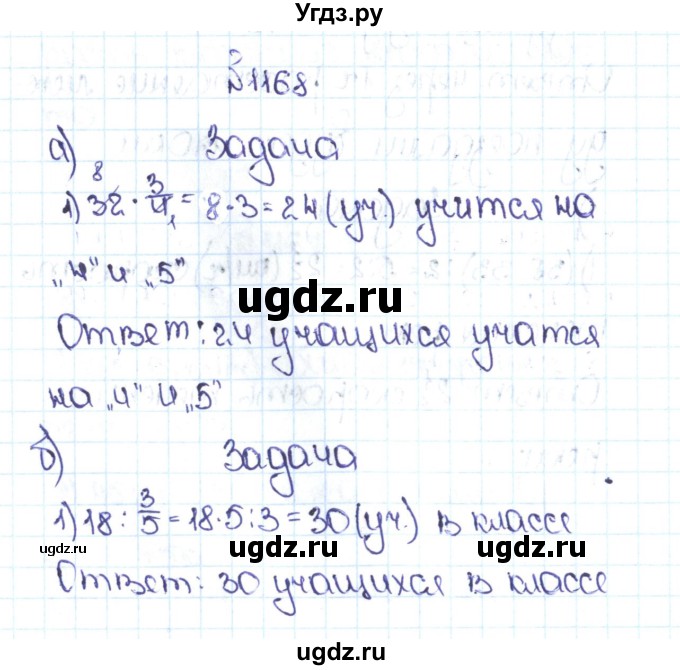 Угдз.ру
№1168.
а) Задача
8
1) 32 · 3/4 1 = 8·3=24 (уч.) учится на
„4" и „5"
ugdz.ru
Ответ: 24 учащихся учатся
на „4" и „5"
ugdz.ru
б) Задача
1) 18 : 3/5 = 18·5:3=30 (уч.) в классе
ugdz.ru ugdz.ru ugdz.ru
Ответ: 30 учащихся в классе
ugdz.ru